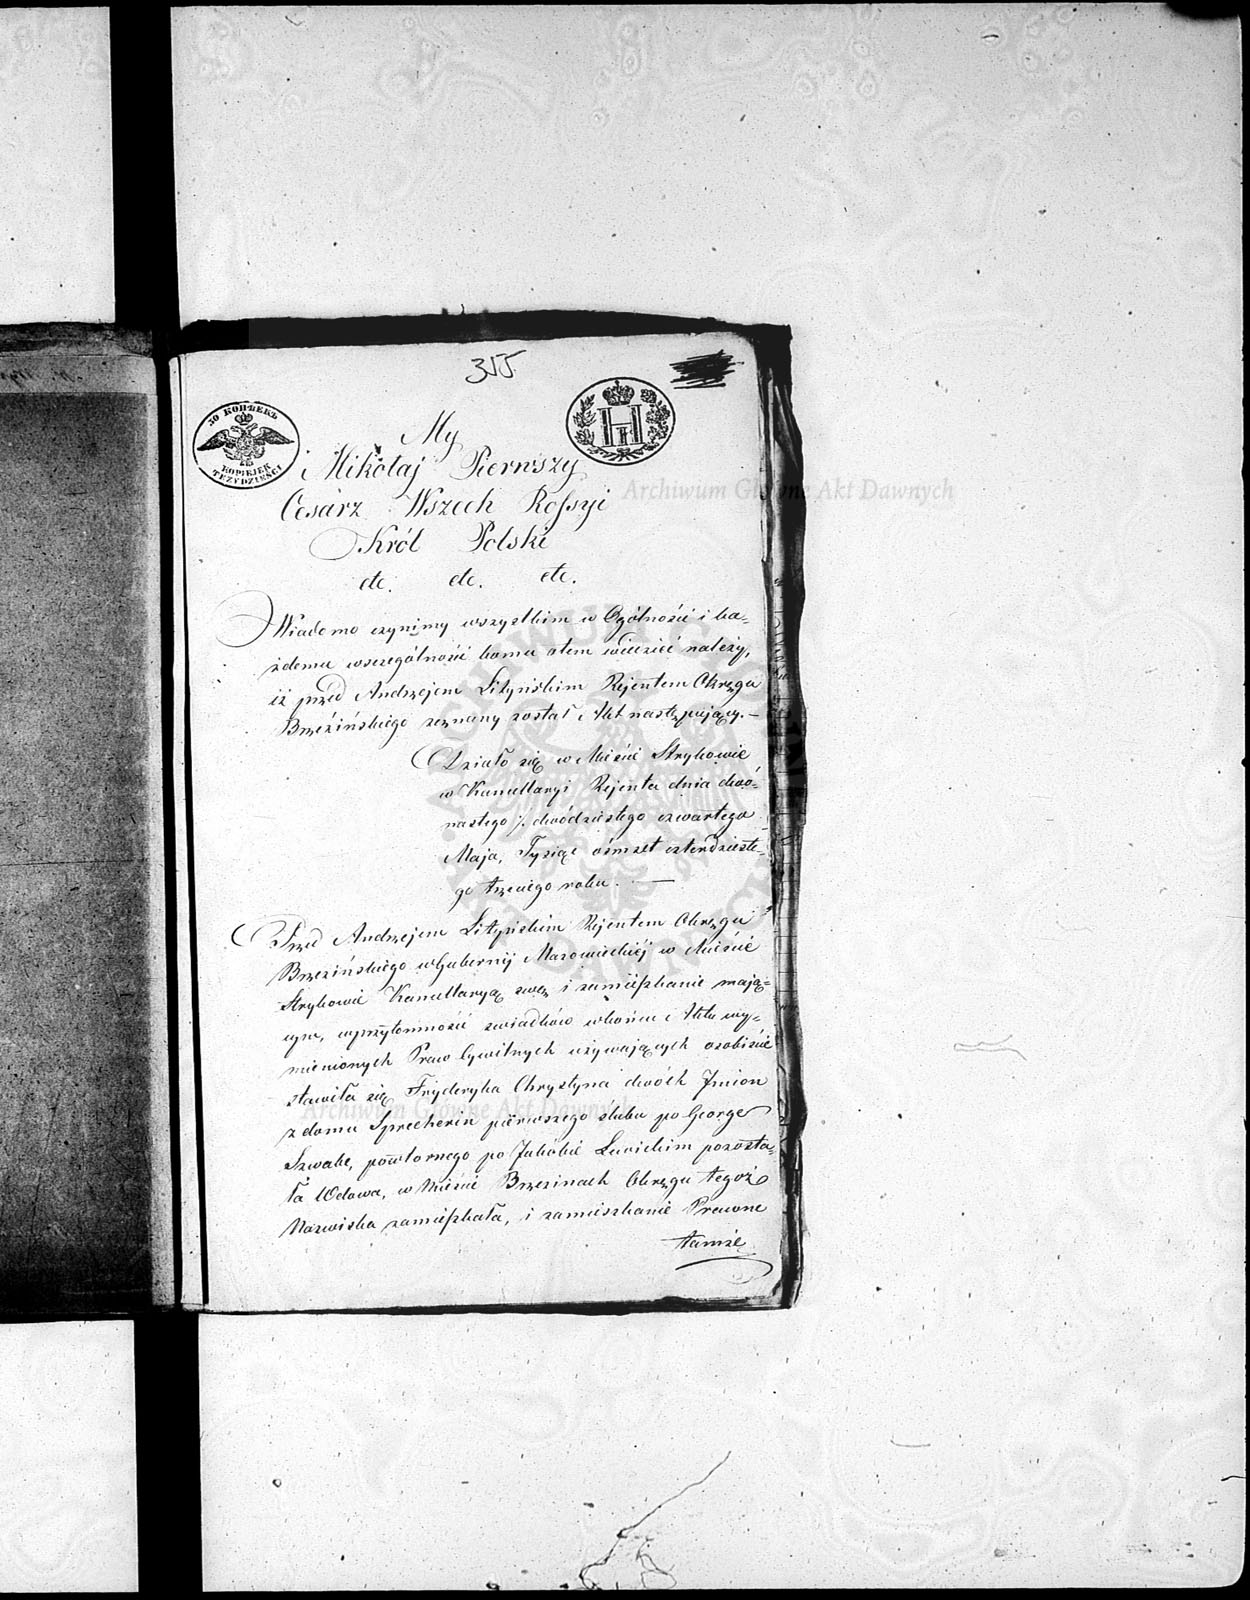 355
30 КОПѢЕКЪ
KOPIEJEK
TRZYDZIEŚCI
My
Mikołaj Pierwszy
Cesarz Wszech Rossyi
Król Polski
etc. etc. etc.
Wiadomo czynimy wszystkim w Ogólności i ka-
żdemu wszczególności komu otem wiedzieć należy,
iż przed Andrzejem Lityńskim Rejentem Okręgu
Brzezińskiego zeznany został Akt następujący. —
Działo się w Mieście Strykowie
w Kancellaryi Rejenta dnia dwó-
nastego /. dwódziestego czwartego
Maja, Tysiąc ośmset czterdzieste-
go trzeciego roku. —
Przed Andrzejem Lityńskim Rejentem Okręgu
Brzezińskiego w Gubernij Mazowieckiéj w Mieście
Strykowie Kancellaryą swą i zamieszkanie mają-
cym, wprzytomności świadków wkońcu Aktu wy-
mienionych Praw Cywilnych używających osobiście
stawiła się Fryderyka Chrystyna dwóch Imion
z domu Sprecherin pierwszego ślubu po George
Szwabe, powtórnego po Jakóbie Lewickim pozosta-
ła Wdowa, w Mieście Brzezinach Okręgu tegoż
Nazwiska zamieszkała, i zamieszkanie Prawne
tamże
Archiwum Główne Akt Dawnych
Archiwum Główne Akt Dawnych